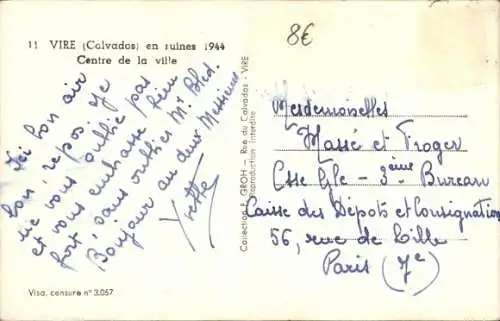 11 VIRE (Calvados) en ruines 1944
Centre de la ville
8€
Ici bon air
bon repos. Je
ne vous oublie pas
et vous embrasse bien
fort, sans oublier Mr Bled.
Bonjour au deux Messieurs
Yvette
Visa, censure n° 3.057
Collection F. GROH - Rue du Calvados - VIRE
Reproduction Interdite
Mesdemoiselles
Massé et Froger
Csse Gle - 3ème Bureau
Caisse des Dépôts et Consignation
56, rue de Lille
Paris (7e)